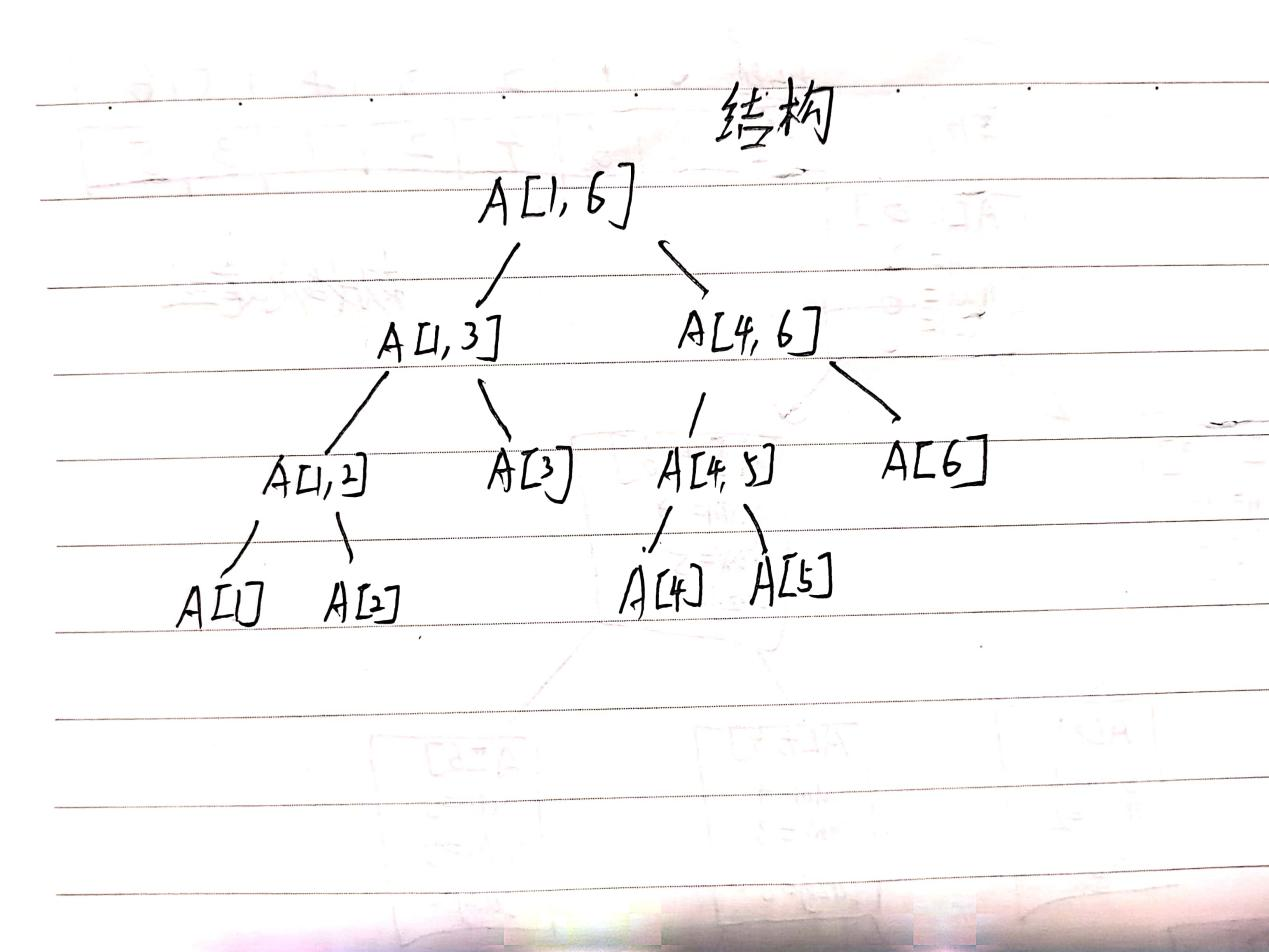 结构
A[1,6]
A[1,3] A[4,6]
A[1,2] A[3] A[4,5] A[6]
A[1] A[2] A[4] A[5]